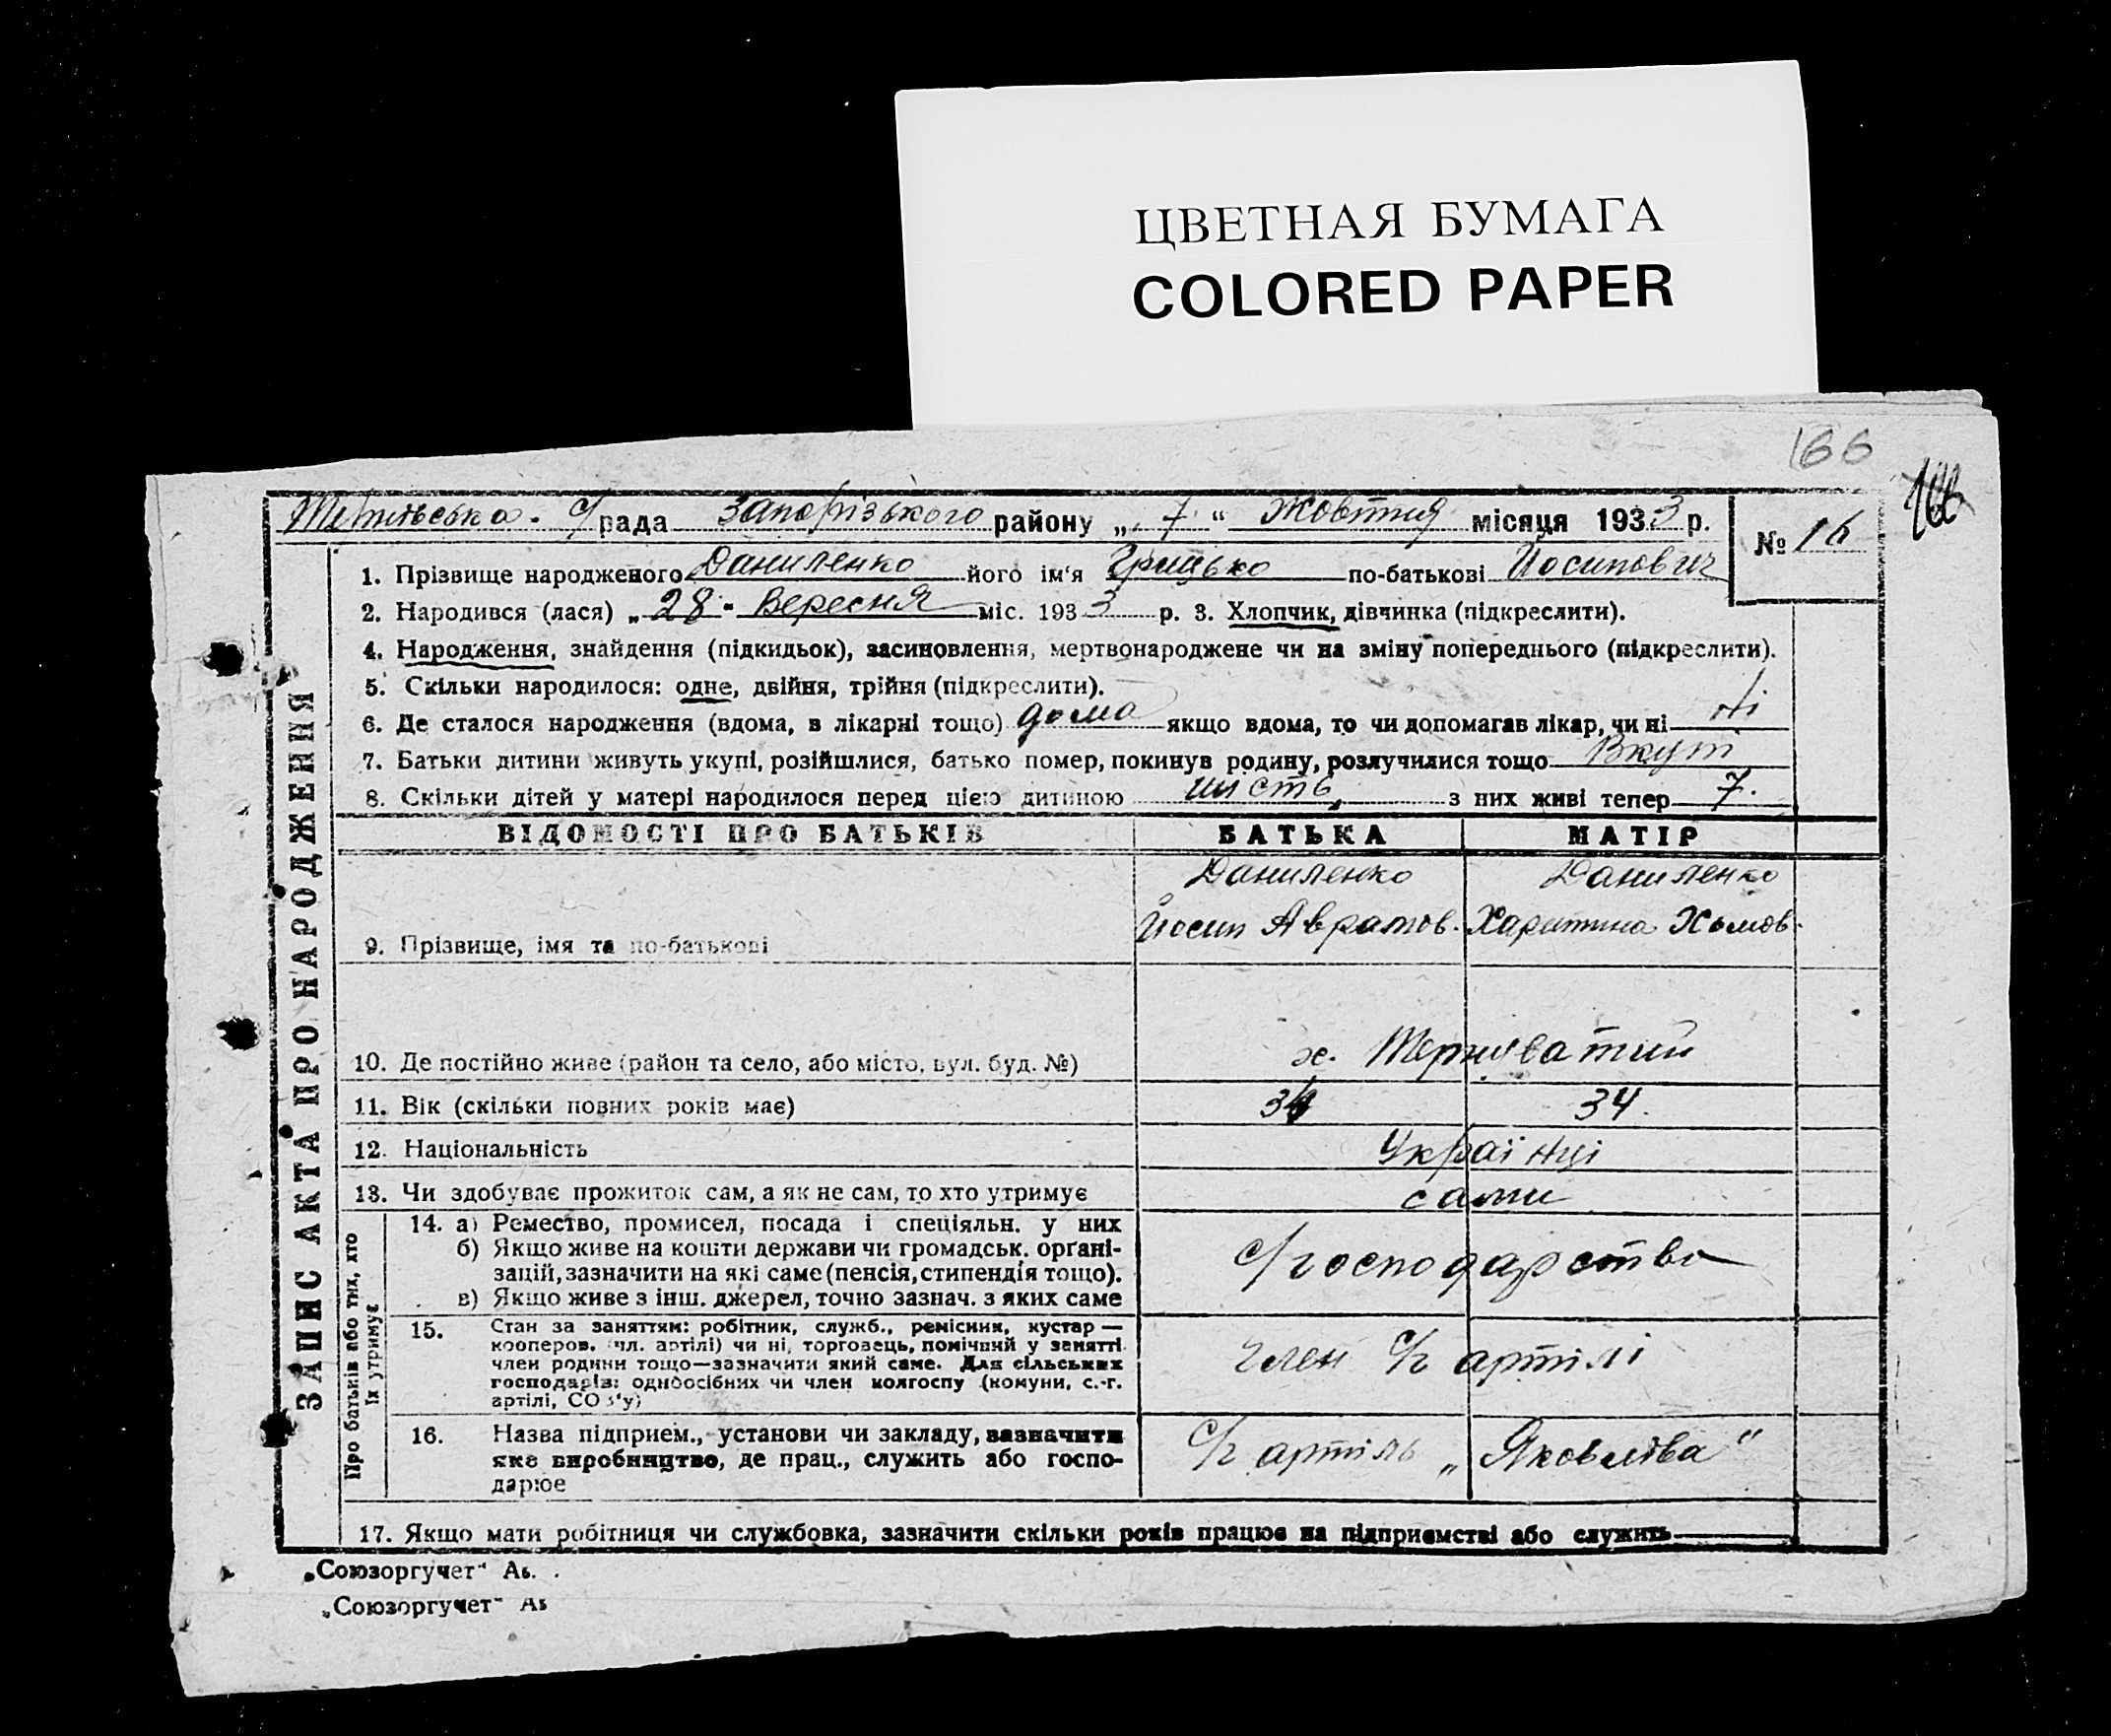 ЦВЕТНАЯ БУМАГА
COLORED PAPER
166
166
рада Запорізького району „ 7 “ Жовтня місяця 1933 р.
№ 16
ЗАПИС АКТА ПРО НАРОДЖЕННЯ
1. Прізвище народженого Даниленко його ім‘я Грицько по-батькові Йосипович
2. Народився (лася) „ 28 " Вересня міс. 1933 р. 3. Хлопчик, дівчинка (підкреслити).
4. Народження, знайдення (підкидьок), засиновлення, мертвонароджене чи на зміну попереднього (підкреслити).
5. Скільки народилося: одне, двійня, трійня (підкреслити).
6. Де сталося народження (вдома, в лікарні тощо) дома якщо вдома, то чи допомагав лікар, чи ні ні
7. Батьки дитини живуть укупі, розійшлися, батько помер, покинув родину, розлучилися тощо Вкупі
8. Скільки дітей у матері народилося перед цією дитиною шість, з них живі тепер 7.
ВІДОМОСТІ ПРО БАТЬКІВ БАТЬКА МАТІР
Даниленко Даниленко
9. Прізвище, імя та по-батькові Йосип Аврамов. Харитина Хомов.
10. Де постійно живе (район та село, або місто, вул. буд. №) х. Тернуватий
11. Вік (скільки повних років має) 34 34.
12. Національність Українці
13. Чи здобуває прожиток сам, а як не сам, то хто утримує сами
Про батьків або тих, хто
їх утримує
14. а) Ремество, промисел, посада і спеціяльн. у них
б) Якщо живе на кошти держави чи громадськ. орґані-
зацій, зазначити на які саме (пенсія, стипендія тощо). с/господарство
в) Якщо живе з інш. джерел, точно зазнач. з яких саме
15. Стан за заняттям: робітник, служб., ремісник, кустар —
кооперов. чл. артілі) чи ні, торговець, помічний у занятті
член родини тощо—зазначити який саме. Для сільських член с/г артілі
господарів: одноосібних чи член колгоспу (комуни, с.-г.
артілі, СОЗ‘у)
16. Назва підприєм., установи чи закладу, зазначити
яке виробництво, де прац., служить або госпо- с/г артіль „Яковлєва“
дарює
17. Якщо мати робітниця чи службовка, зазначити скільки років працює на підприємстві або служить
„Союзоргучет“
„Союзоргучет“